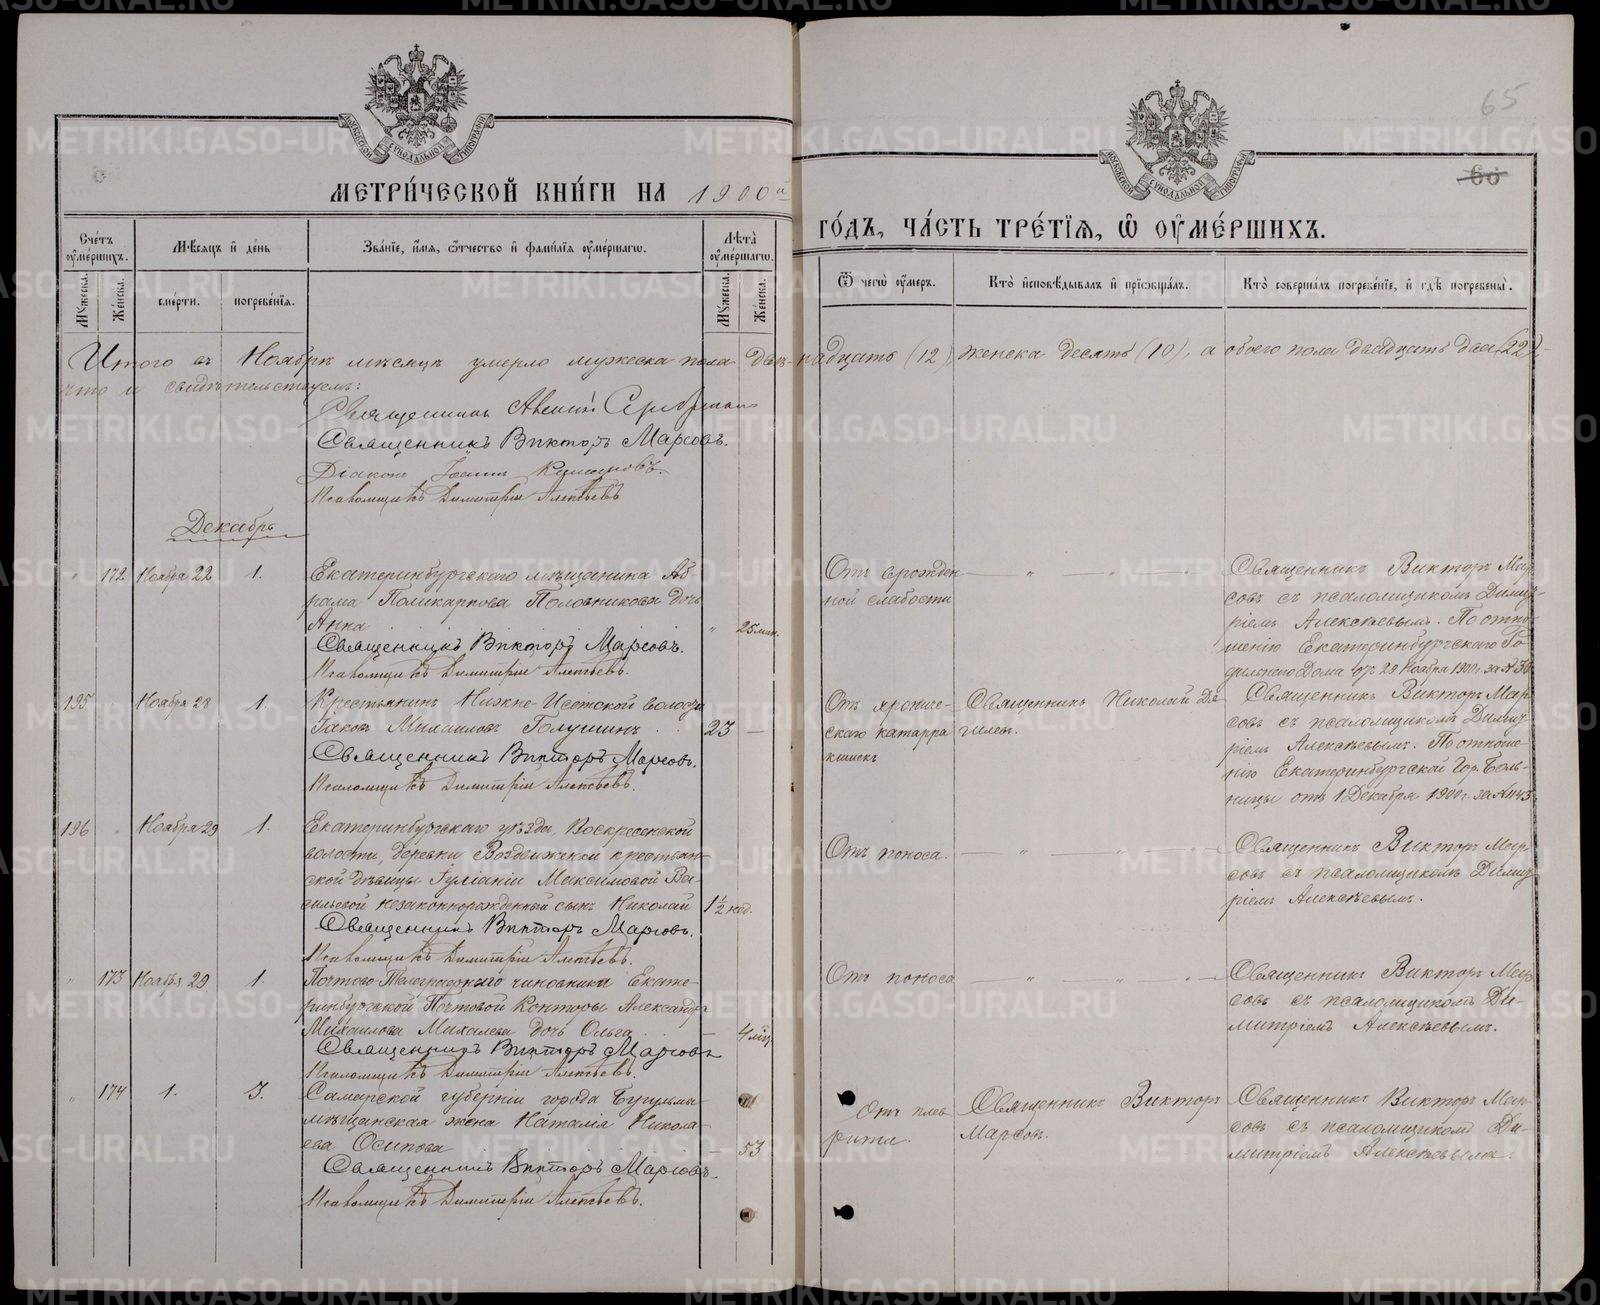 65
60
МОСКОВСКОЙ СѴНОДАЛЬНОЙ ТИПОГРАФІИ
МОСКОВСКОЙ СѴНОДАЛЬНОЙ ТИПОГРАФІИ
МЕТРИ́ЧЕСКОЙ КНИ́ГИ НА 1900й
ГО́ДЪ, ЧА́СТЬ ТРЕ́ТІЯ, Ѿ ОУМЕ́РШИХЪ.
Счетъ оумершихъ.
Мужеска.
Женска.
Мѣсяцъ и день
смерти.
погребенія.
Званіе, имя, отчество и фамилія оумершагѡ.
Лѣта оумершагѡ.
Мужеска.
Женска.
Ѿ чегѡ оумеръ.
Кто исповѣдывалъ и пріобщалъ.
Кто совершалъ погребеніе, и гдѣ погребены.
Итого въ Ноябрѣ мѣсяцѣ умерло мужеска пола двѣнадцать (12), женска десять (10), а обоего пола двадцать два (22)
что и свидѣтельствуемъ:
Священникъ
Священникъ Викторъ Марсовъ.
Діаконъ Іоаннъ
Псаломщикъ Димитрій Алексѣевъ
Декабрь
172 Ноября 22 1.
Екатеринбургскаго мѣщанина Аб
рама Поликарпова Половникова дочь
Анна 25 мин.
Священникъ Викторъ Марсовъ.
Псаломщикъ Димитрій Алексѣевъ.
Отъ врожден
ной слабости
Священникъ Викторъ Мар
совъ съ псаломщикомъ Димит
ріемъ Алексѣевымъ. По отно
шенію Екатеринбургскаго Ро
дильнаго Дома отъ 29 Ноября 1900 г. за №
195 Ноября 28 1.
Крестьянинъ Нижне-Исетской волости
Іаковъ Михаиловъ Голушинъ 23
Священникъ Викторъ Марсовъ.
Псаломщикъ Димитрій Алексѣевъ.
Отъ хрониче-
скаго катарра
кишекъ
Священникъ Николай Дя
гилевъ.
Священникъ Викторъ Мар
совъ съ псаломщикомъ Димит
ріемъ Алексѣевымъ. По отноше-
нію Екатеринбургской Гор. Боль-
ницы отъ 1 Декабря 1900 г. за №
196 Ноября 29 1.
Екатеринбургскаго уѣзда, Воскресенской
волости, деревни Воздвиженки крестьян-
ской дѣвицы Іуліаніи Максимовой Ва-
сильевой незаконнорожденный сынъ Николай 1½ нед.
Священникъ Викторъ Марсовъ.
Псаломщикъ Димитрій Алексѣевъ.
Отъ поноса.
Священникъ Викторъ Мар
совъ съ псаломщикомъ Димит
ріемъ Алексѣевымъ.
173 Ноября 29 1.
Почтово-Телеграфнаго чиновника Екате-
ринбургской Почтовой Конторы Александра
Михаилова Михалева дочь Ольга 4 мѣс.
Священникъ Викторъ Марсовъ
Псаломщикъ Димитрій Алексѣевъ.
Отъ поноса
Священникъ Викторъ Мар
совъ съ псаломщикомъ Ди-
митріемъ Алексѣевымъ.
174 1. 3.
Самарской губерніи города Бугульмы
мѣщанская жена Наталія Никола
ева Осипова 53
Священникъ Викторъ Марсовъ
Псаломщикъ Димитрій Алексѣевъ.
Отъ плев
рита.
Священникъ Викторъ
Марсовъ.
Священникъ Викторъ Мар-
совъ съ псаломщикомъ Ди-
митріемъ Алексѣевымъ.
METRIKI.GASO-URAL.RU